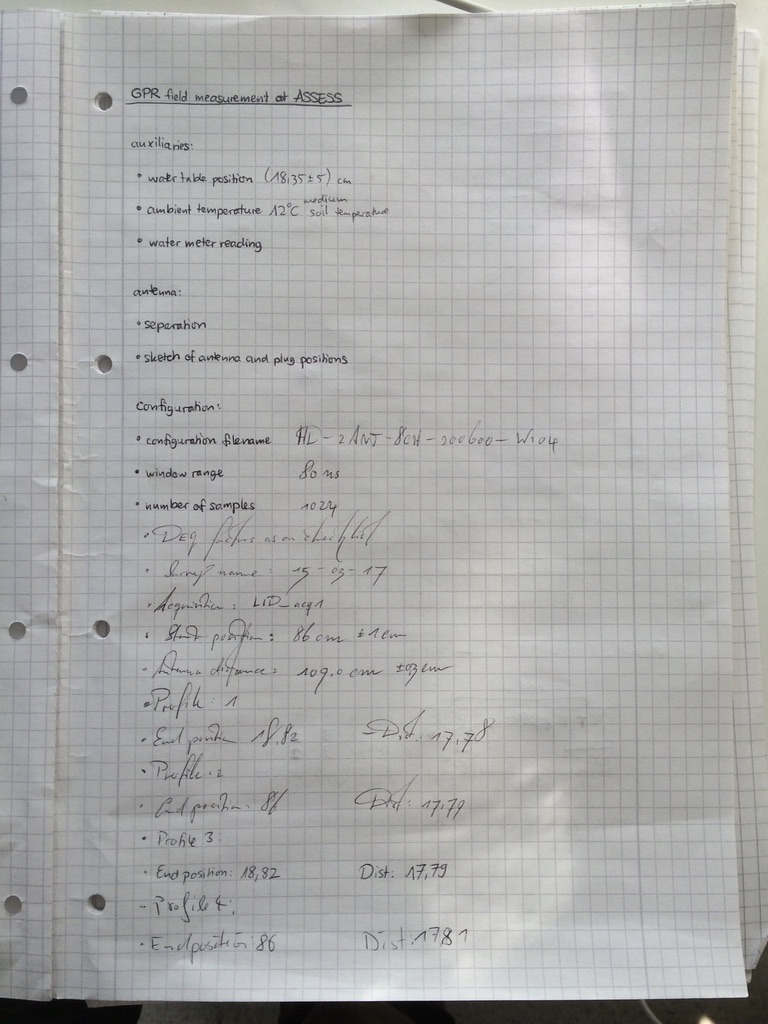 GPR field measurement at ASSESS
auxiliaries:
• water table position (18,35 ± 5) cm
• ambient temperature 12°C medium soil temperature
• water meter reading
antenna:
• separation
• sketch of antenna and plug positions
configuration:
• configuration filename HD-2ANT-8CH-200600-W104
• window range 80 ns
• number of samples 1024
• as on checklist
• Survey name: 15-03-17
• Acquisition: LID_acq1
• Start position: 86 cm ±1cm
• Antenna distance: 109.0 cm ±0,3 cm
• Profile: 1
• End position 18,82 Dist: 17,78
• Profile: 2
• End position: 86 Dist: 17,79
• Profile 3:
• End position: 18,82 Dist: 17,79
- Profile 4:
• End position: 86 Dist: 17,81